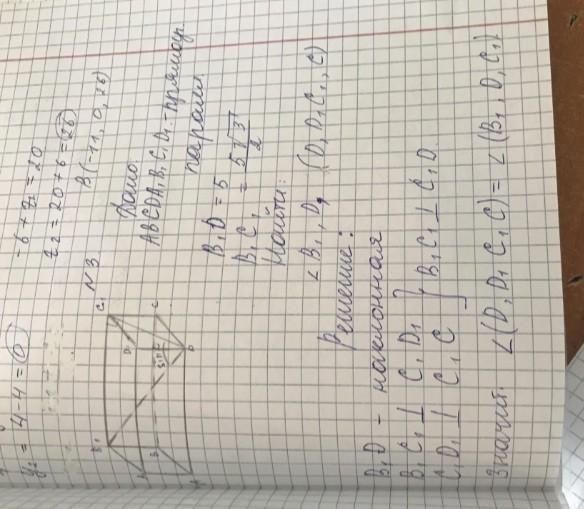 y₂ = 4 - 4 = 0
-6 + z₂ = 20
z₂ = 20 + 6 = 26
B(-11, 0, 26)
N3
Дано:
ABCDA₁B₁C₁D₁ - прямоуг.
паралл.
B₁D = 5
B₁C₁ = 5√3/2
Найти:
∠B₁, D, (D, D₁C₁, C)
Решение:
B₁D - наклонная
B₁C₁ ⊥ C₁D₁
C₁D₁ ⊥ C₁C } B₁C₁ ⊥ C₁D.
Значит, ∠(D, D₁C₁C) = ∠(B₁, D, C₁)